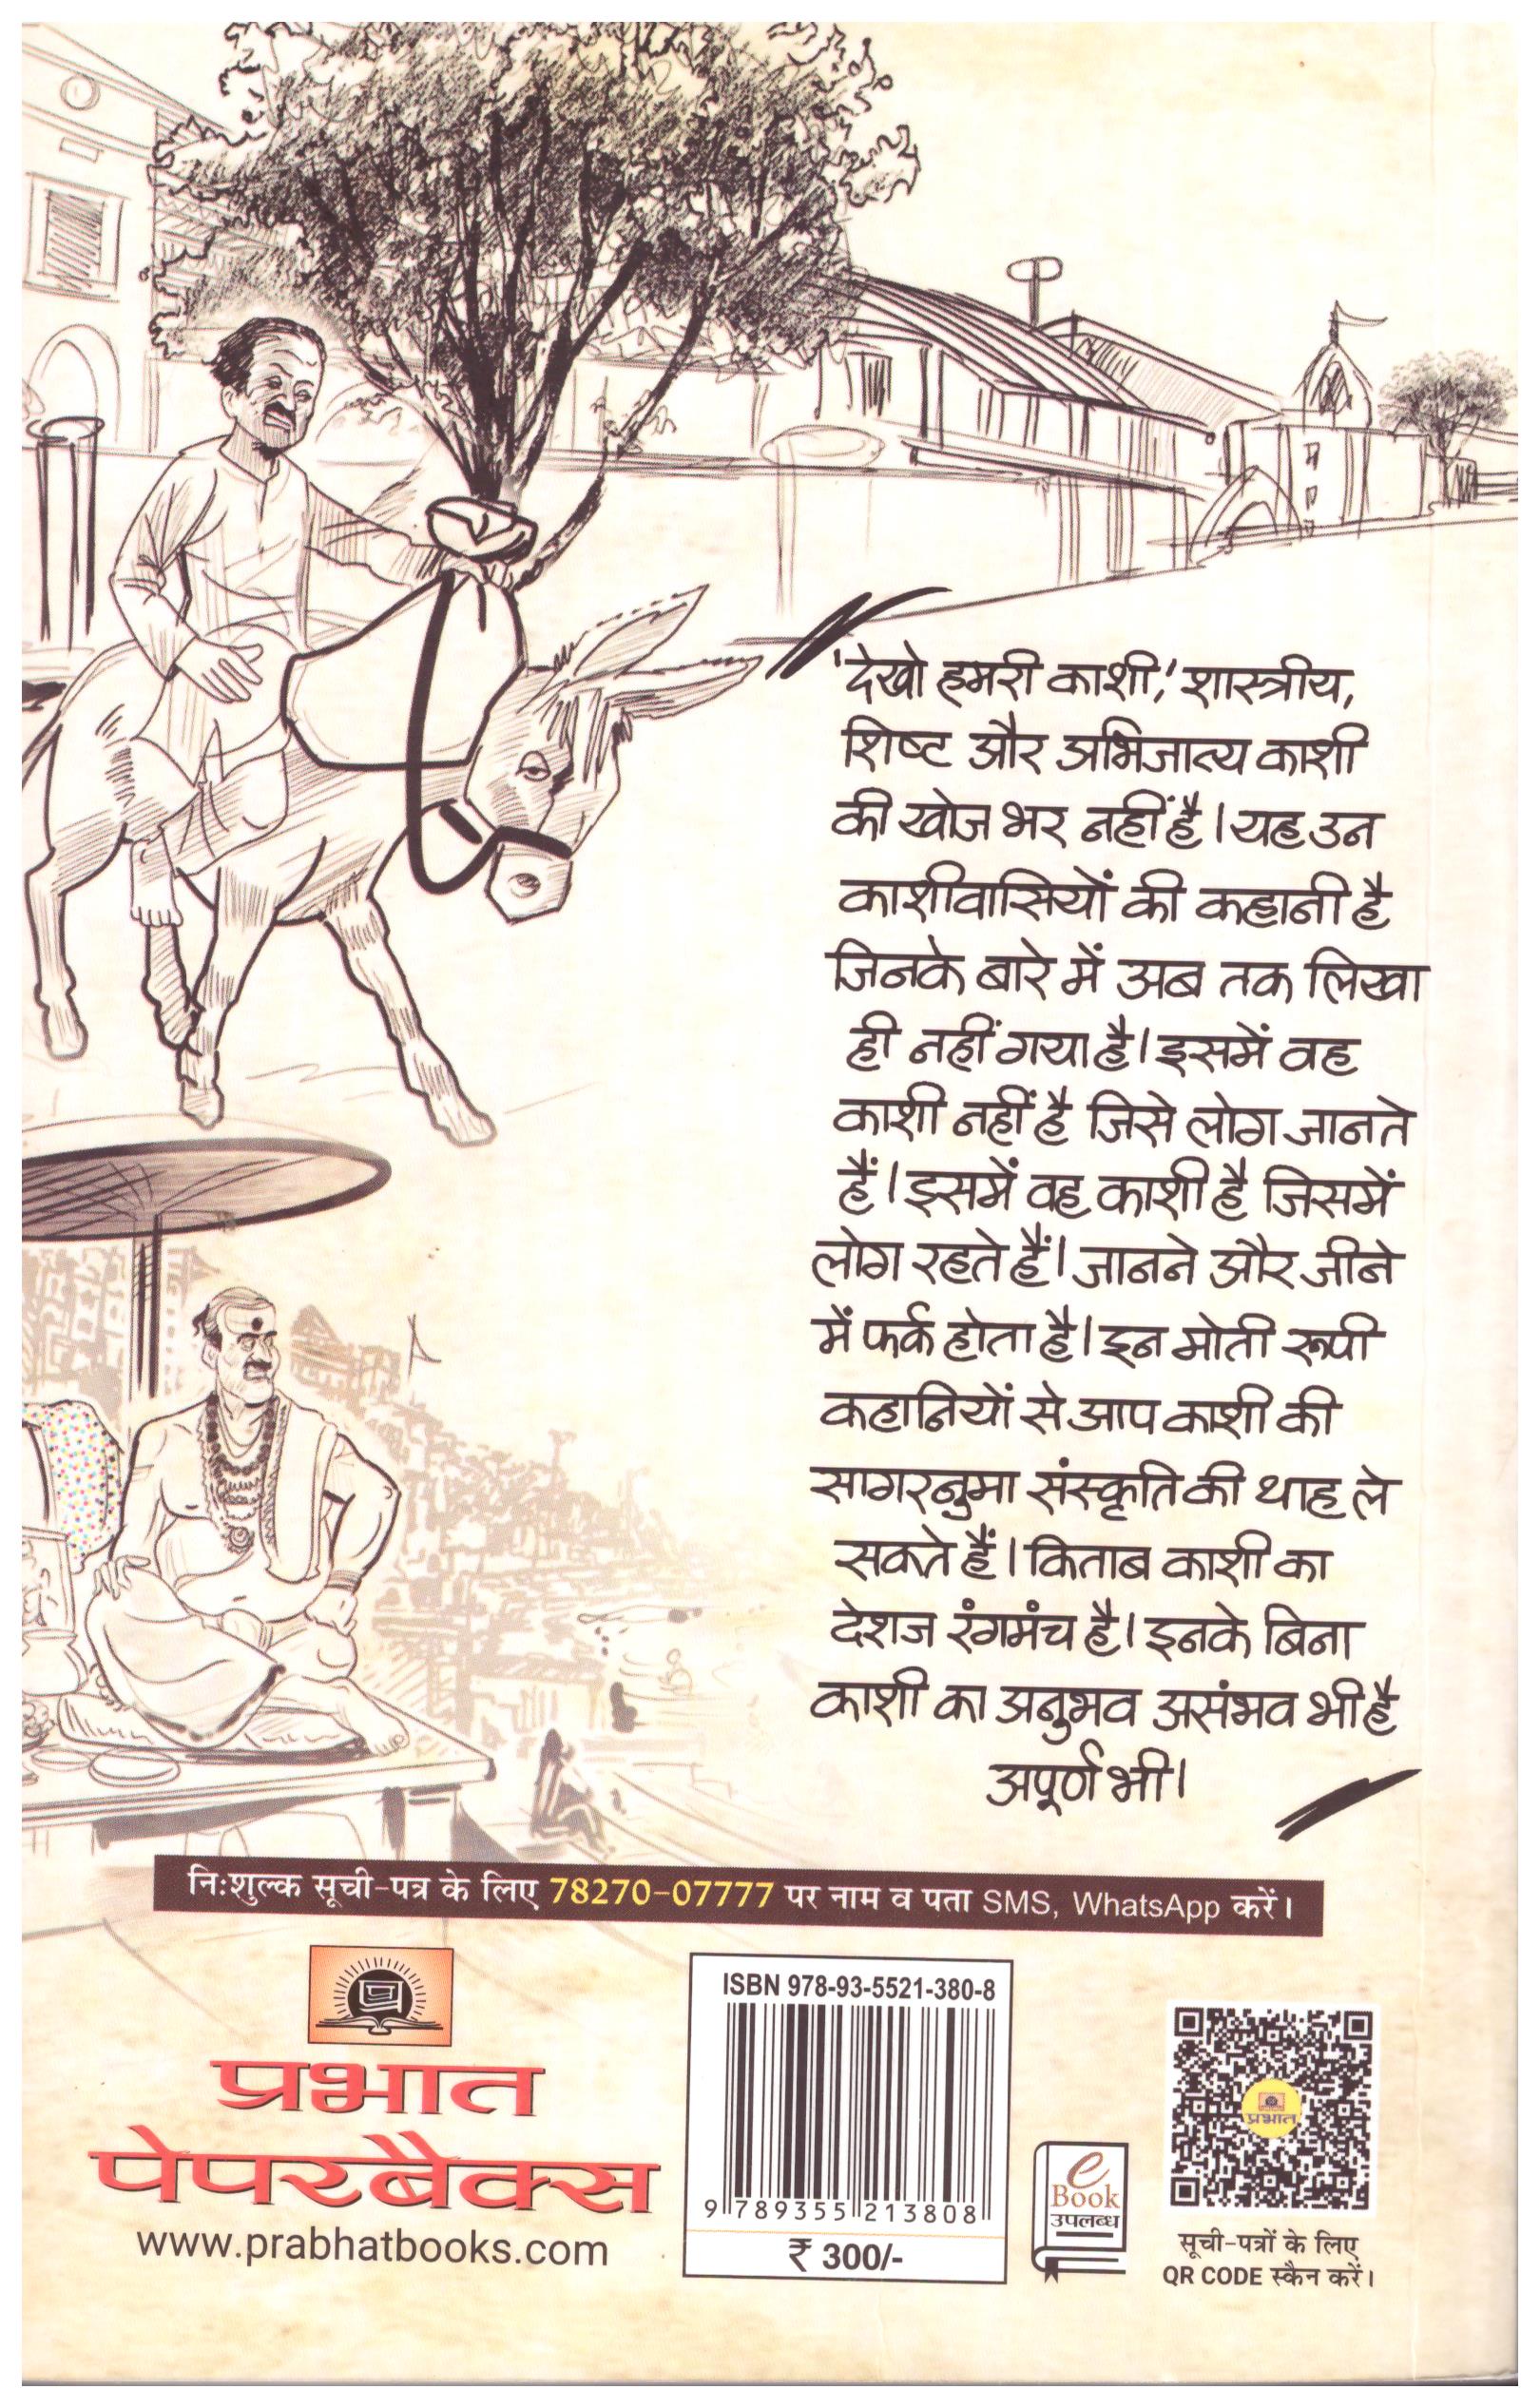 'देखो हमरी काशी,' शास्त्रीय,
शिष्ट और अभिजात्य काशी
की खोज भर नहीं है। यह उन
काशीवासियों की कहानी है
जिनके बारे में अब तक लिखा
ही नहीं गया है। इसमें वह
काशी नहीं है जिसे लोग जानते
हैं। इसमें वह काशी है जिसमें
लोग रहते हैं। जानने और जीने
में फर्क होता है। इन मोती रूपी
कहानियों से आप काशी की
सागरनुमा संस्कृति की थाह ले
सकते हैं। किताब काशी का
देशज रंगमंच है। इनके बिना
काशी का अनुभव असंभव भी है
अपूर्ण भी।
निःशुल्क सूची-पत्र के लिए 78270-07777 पर नाम व पता SMS, WhatsApp करें।
प्रभात
पेपरबैक्स
www.prabhatbooks.com
ISBN 978-93-5521-380-8
9 789355 213808
₹ 300/-
e
Book
उपलब्ध
प्रभात
सूची-पत्रों के लिए
QR CODE स्कैन करें।